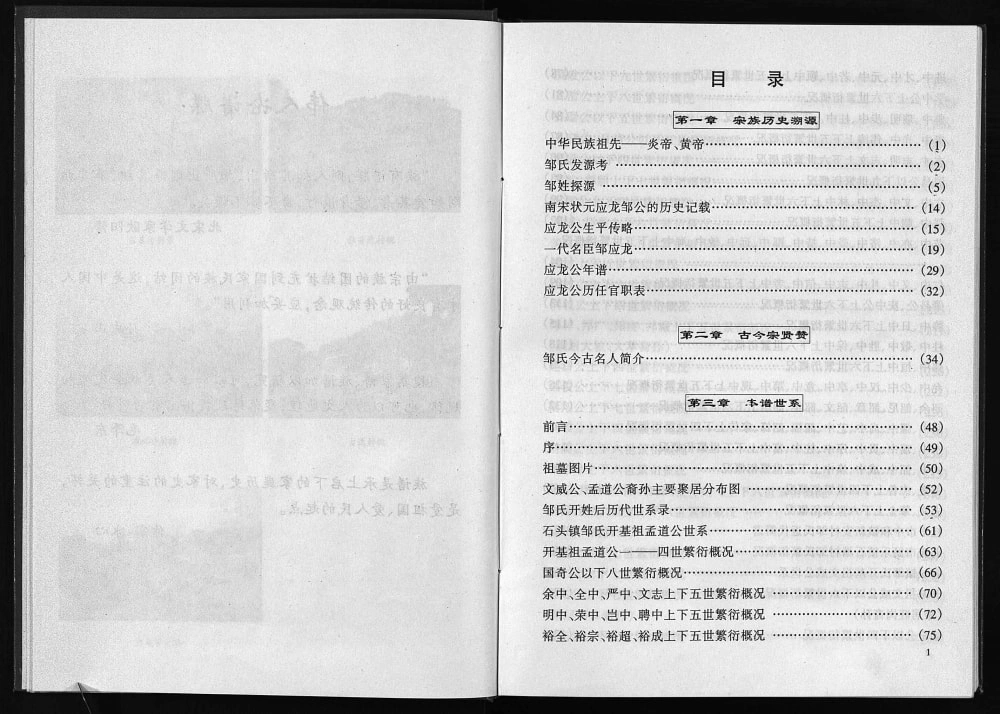 目 录
第一章 宗族历史溯源
中华民族祖先——炎帝、黄帝……(1)
邹氏发源考……(2)
邹姓探源……(5)
南宋状元应龙邹公的历史记载……(14)
应龙公生平传略……(15)
一代名臣邹应龙……(19)
应龙公年谱……(29)
应龙公历任官职表……(32)
第二章 古今宗贤赞
邹氏今古名人简介……(34)
第三章 本谱世系
前言……(48)
序……(49)
祖墓图片……(50)
文威公、孟道公裔孙主要聚居分布图……(52)
邹氏开姓后历代世系录……(53)
石头镇邹氏开基祖孟道公世系……(61)
开基祖孟道公——四世繁衍概况……(63)
国奇公以下八世繁衍概况……(66)
余中、全中、严中、文志上下五世繁衍概况……(70)
明中、荣中、岂中、聘中上下五世繁衍概况……(72)
裕全、裕宗、裕超、裕成上下五世繁衍概况……(75)
1